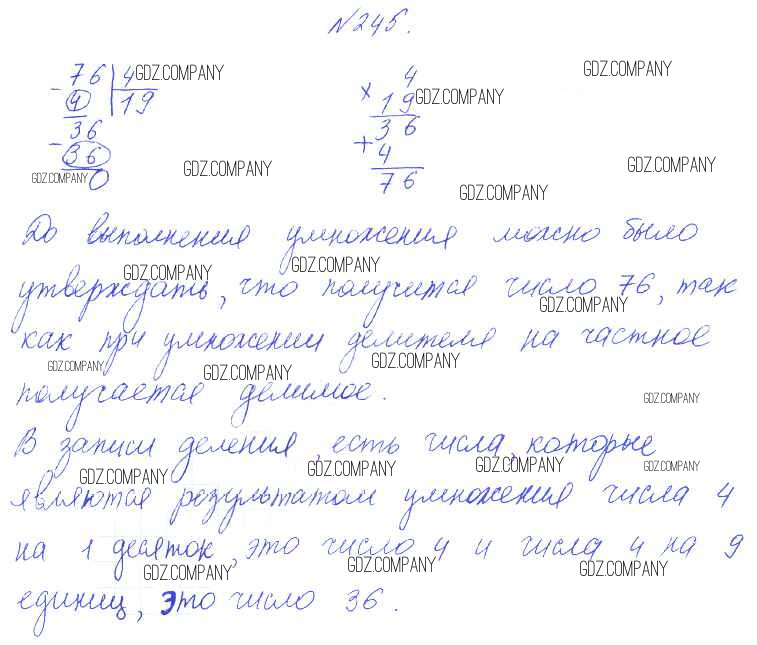 №245.
76 | 4 GDZ.COMPANY 4 GDZ.COMPANY
- 4 | 19 × 19 GDZ.COMPANY
36 36
- 36 + 4
GDZ.COMPANY 0 GDZ.COMPANY 76 GDZ.COMPANY GDZ.COMPANY
До выполнения умножения можно было
GDZ.COMPANY GDZ.COMPANY
утверждать, что получится число 76, так
GDZ.COMPANY
как при умножении делителя на частное
GDZ.COMPANY GDZ.COMPANY GDZ.COMPANY
получается делимое. GDZ.COMPANY
В записи деления, есть числа, которые
GDZ.COMPANY GDZ.COMPANY GDZ.COMPANY GDZ.COMPANY
являются результатом умножения числа 4
на 1 десяток, это число 4 и числа 4 на 9
GDZ.COMPANY GDZ.COMPANY GDZ.COMPANY
единиц, это число 36.